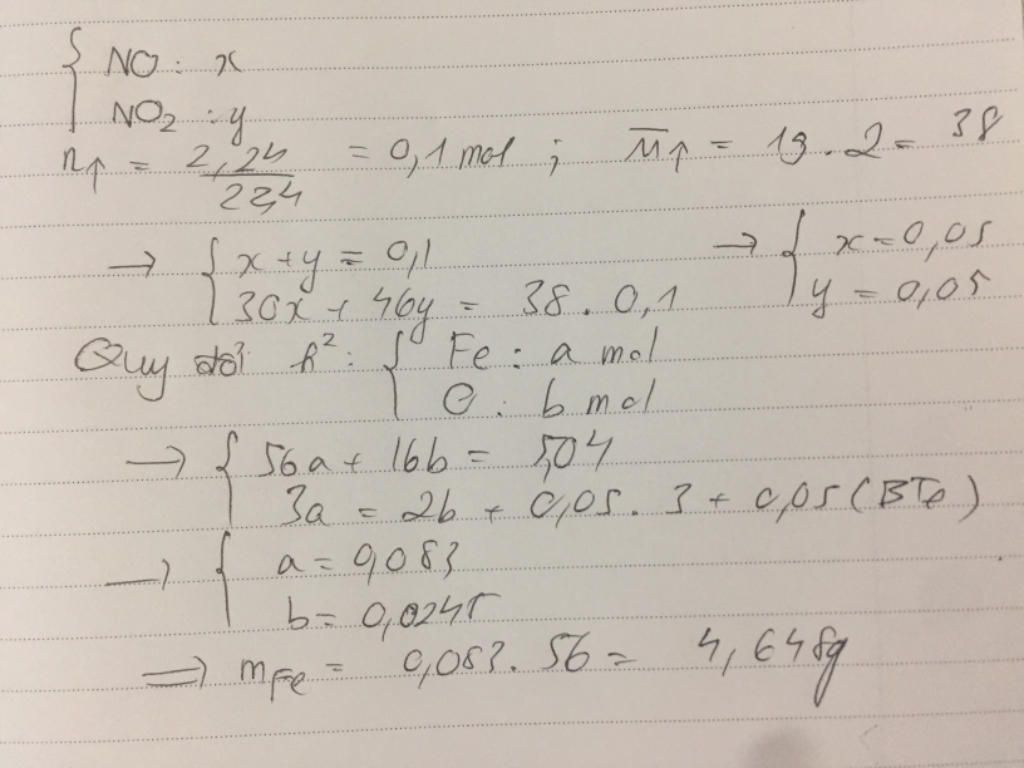 { NO : x
NO₂ : y
n↑ = 2,24 / 22,4 = 0,1 mol ; M̅↑ = 19 . 2 = 38
→ { x + y = 0,1 → { x = 0,05
30x + 46y = 38 . 0,1 y = 0,05
Quy đổi h² : { Fe : a mol
O : b mol
→ { 56a + 16b = 5,04
3a = 2b + 0,05 . 3 + 0,05 (BTe)
→ { a = 0,083
b = 0,0245
⇒ mFe = 0,083 . 56 = 4,648g